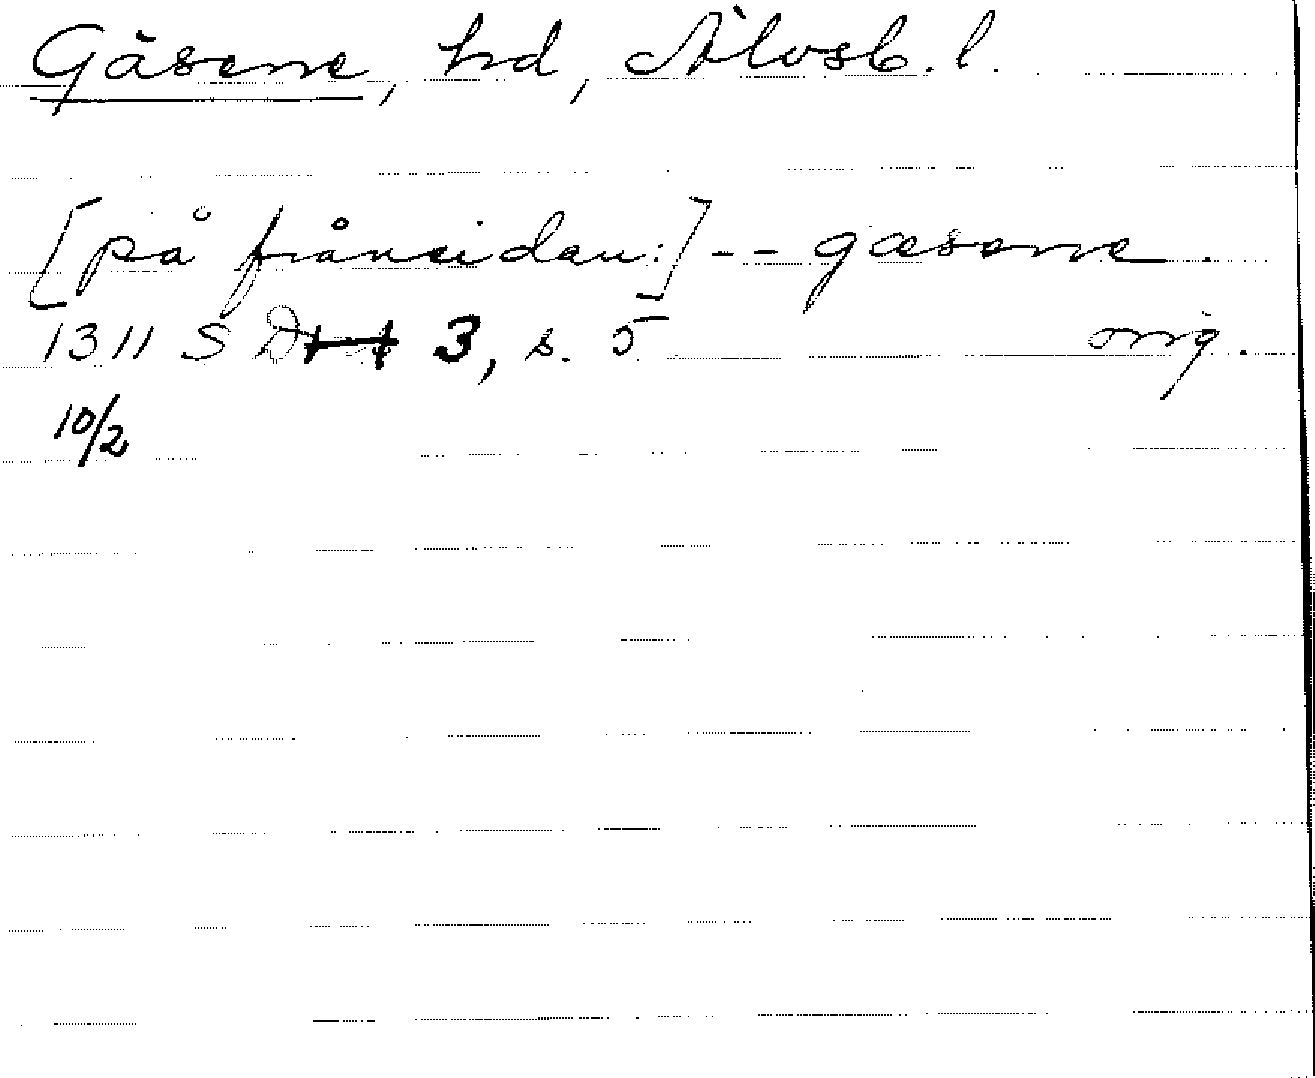 Gäsene, hd, Älvsb. l.
[på frånsidan:] -- gæsene.
1311 S D 3, s. 5 orig.
10/2